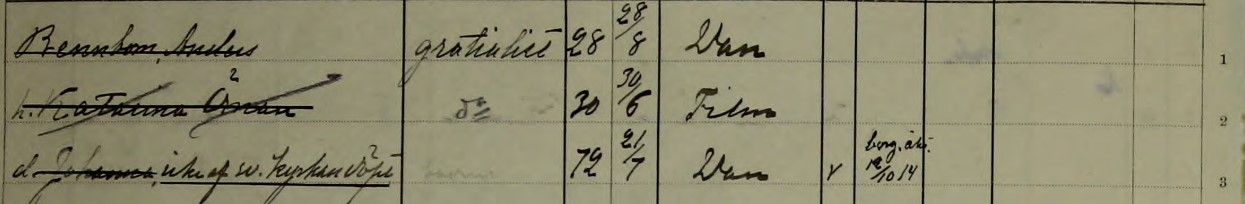 Bennbom, Anders gratialist 28 28/8 Dan 1
h. Katarina Öman 2 do 30 30/6 Film 2
d. Johanna, icke af sv. kyrkan döpt 72 21/7 Dan v borg. äkt. 12/10 14 3